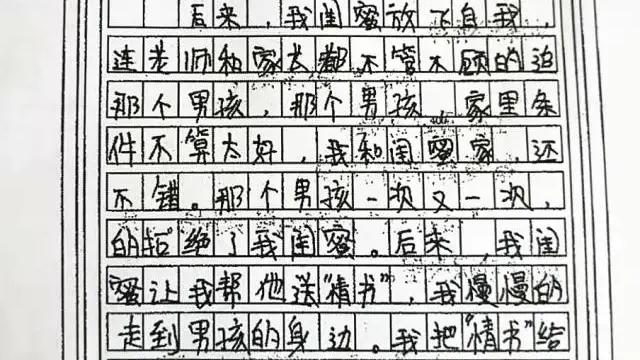 后来，我闺蜜放下自我，
连老师和家长都不管不顾的追
那个男孩，那个男孩，家里条
件不算太好，我和闺蜜家，还
不错。那个男孩一次又一次，
的拒绝了我闺蜜。后来，我闺
蜜让我帮他送“情书”，我慢慢的
走到男孩的身边。我把“情书”给